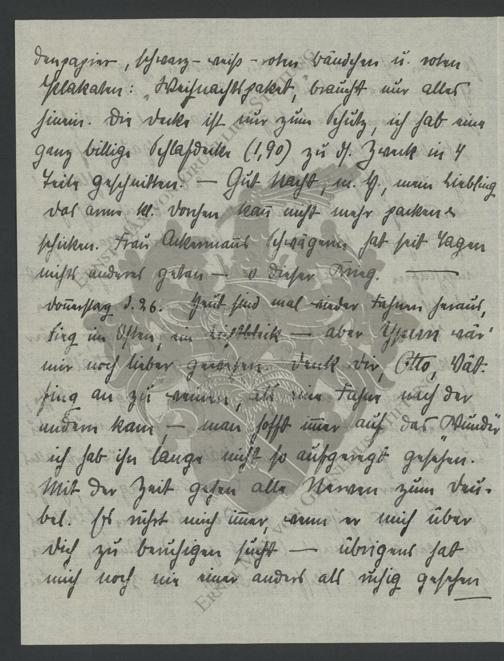 denpapier, schwarz-weiß-roten Bändchen u. roten
Plakaten: "Weihnachtspaket", braucht nur alles
hinein. Die Decke ist nur zum Schutz, ich hab eine
ganz billige Schlafdecke (1,90) zu d. Zweck in 4
Teile geschnitten. — Gut Nacht, m. H., mein Liebling
das arme kl. Dorchen kann nicht mehr packen &
schicken. Frau Ackermanns Schwägerin hat seit Tagen
nichts anderes getan — o dieser Krieg. ——
Donnerstag d. 26. Heut sind mal wieder Fahnen heraus,
Sieg im Osten, ein Lichtblick — aber Ypern wär'
mir noch lieber gewesen. Denk dir, Otto, Vät-
fing an zu weinen, als eine Fahne nach der
andern kam, — man hofft immer auf das Wunder
ich hab ihn lange nicht so aufgeregt gesehen.
Mit der Zeit gehen alle Nerven zum Deu-
bel. Es rührt mich immer, wenn er mich über
Dich zu beruhigen sucht — übrigens hat
mich noch nie einer anders als ruhig gesehen